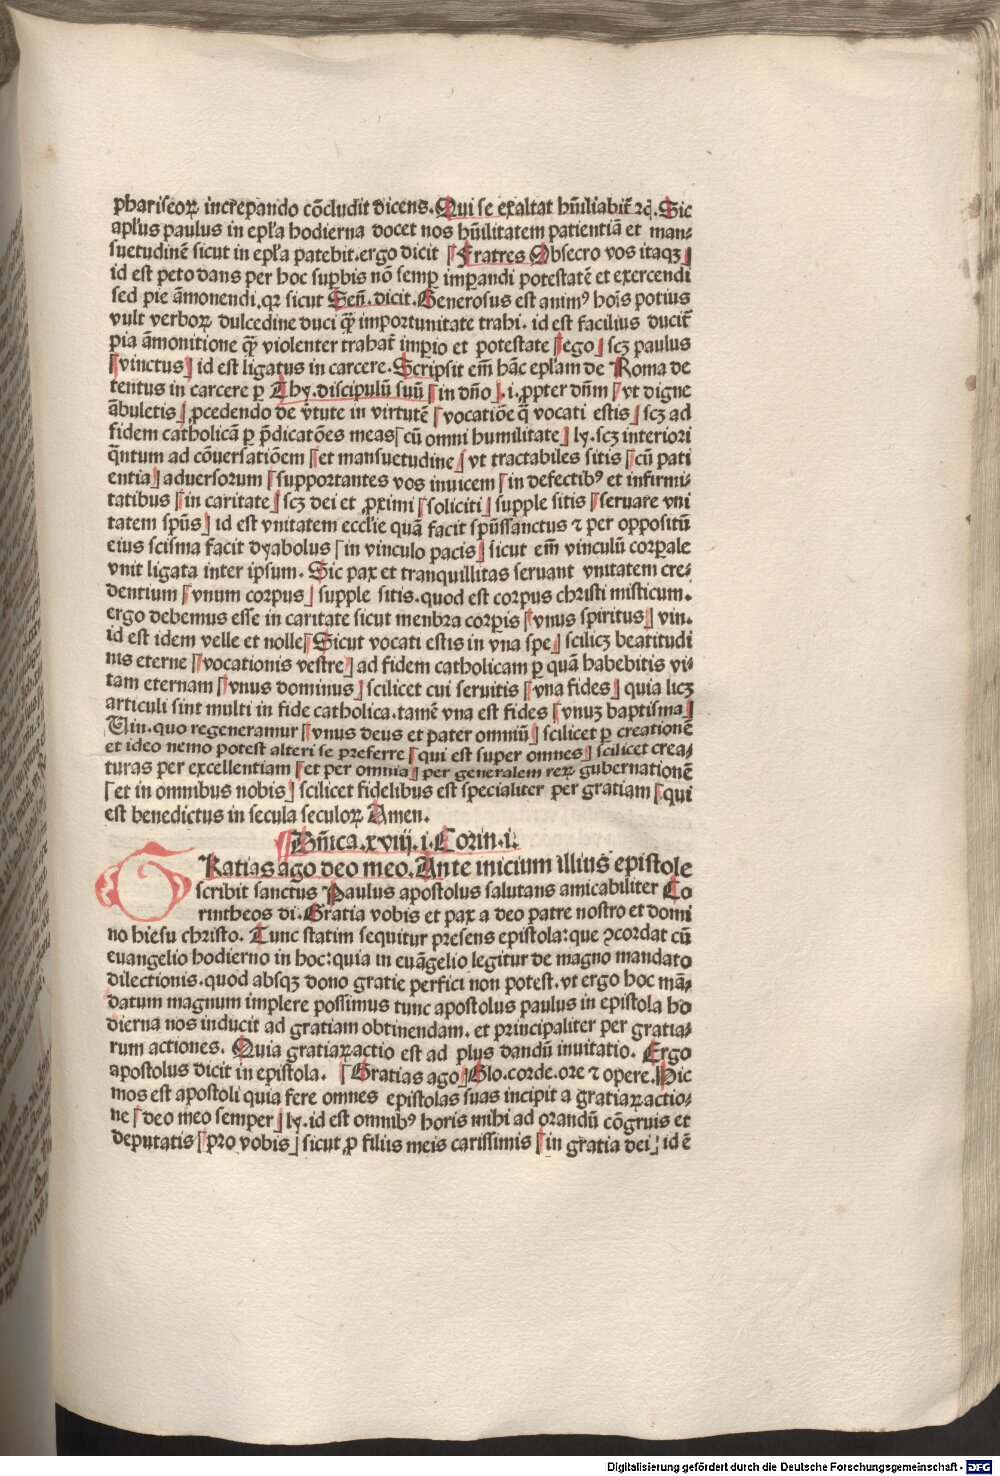 phariseoꝝ increpando cōcludit dicens. Qui se exaltat hūiliabit̄ ⁊c̄. Sic
apl̄us paulus in epl̄a hodierna docet nos hūilitatem patientiā et man⸗
suetudinē sicut in epl̄a patebit. ergo dicit [Fratres Obsecro vos itaqꝫ]
id est peto dans per hoc suꝑbis nō semꝑ imꝑandi potestatē et exercendi
sed pie āmonendi. qꝛ sicut Señ. dicit. Generosus est animꝰ hoīs potius
vult verboꝝ dulcedine duci qꝫ̄ importunitate trahi. id est facilius ducit̄
pia āmonitione qꝫ̄ violenter trahat̄ imꝑio et potestate [ego] scꝫ paulus
[vinctus] id est ligatus in carcere. Scripsit em̄ hāc epl̄am de Roma de
tentus in carcere ꝑ Thy. discipulū suū [in dn̄o]. i. ꝓpter dn̄m [vt digne
ābuletis] ꝓcedendo de v̄tute in virtutē [vocatiōe q̄ vocati estis] scꝫ ad
fidem catholicā ꝑ p̄dicatōes meas [cū omni humilitate] ly. scꝫ interiori
q̄ntum ad cōuersatiōem [et mansuetudine] vt tractabiles sitis [cū pati
entia] aduersorum [supportantes vos inuicem] in defectibꝰ et infirmi⸗
tatibus [in caritate] scꝫ dei et ꝓximi [soliciti] supple sitis [seruare vni
tatem spūs] id est vnitatem eccl̄ie quā facit spūssanctus ⁊ per oppositū
eius scisma facit dyabolus [in vinculo pacis] sicut em̄ vinculū corꝑale
vnit ligata inter ipsum. Sic pax et tranquillitas seruant vnitatem cre⸗
dentium [vnum corpus] supple sitis. quod est corpus christi misticum.
ergo debemus esse in caritate sicut menbra corꝑis [vnus spiritus] vin.
id est idem velle et nolle [Sicut vocati estis in vna spe] scilicꝫ beatitudi
nis eterne [vocationis vestre] ad fidem catholicam ꝑ quā habebitis vi⸗
tam eternam [vnus dominus] scilicet cui seruitis [vna fides] quia licꝫ
articuli sint multi in fide catholica. tamē vna est fides [vnuꝫ baptisma]
Vin. quo regeneramur [vnus deus et pater omniū] scilicet ꝑ creationē
et ideo nemo potest alteri se preferre [qui est super omnes] scilicet crea⸗
turas per excellentiam [et per omnia] per generalem reꝝ gubernationē
[et in omnibus nobis] scilicet fidelibus est specialiter per gratiam [qui
est benedictus in secula seculoꝝ Amen.
Dn̄ica. xviij. i. Corin. i.
GRatias ago deo meo. Ante inicium illius epistole
scribit sanctus Paulus apostolus salutans amicabiliter Co
rintheos di. Gratia vobis et pax a deo patre nostro et domi
no hiesu christo. Tunc statim sequitur presens epistola: que ꝯcordat cū
euangelio hodierno in hoc: quia in euāgelio legitur de magno mandato
dilectionis. quod absqꝫ dono gratie perfici non potest. vt ergo hoc mā⸗
datum magnum implere possimus tunc apostolus paulus in epistola ho
dierna nos inducit ad gratiam obtinendam. et principaliter per gratia⸗
rum actiones. Quia gratiaꝝactio est ad plus dandū inuitatio. Ergo
apostolus dicit in epistola. [Gratias ago] Glo. corde. ore ⁊ opere. Hic
mos est apostoli quia fere omnes epistolas suas incipit a gratiaꝝactio⸗
ne [deo meo semper] ly. id est omnibꝰ horis mihi ad orandū cōgruis et
deputatis [pro vobis] sicut ꝓ filiis meis carissimis [in gratia dei] id ē
Digitalisierung gefördert durch die Deutsche Forschungsgemeinschaft - DFG